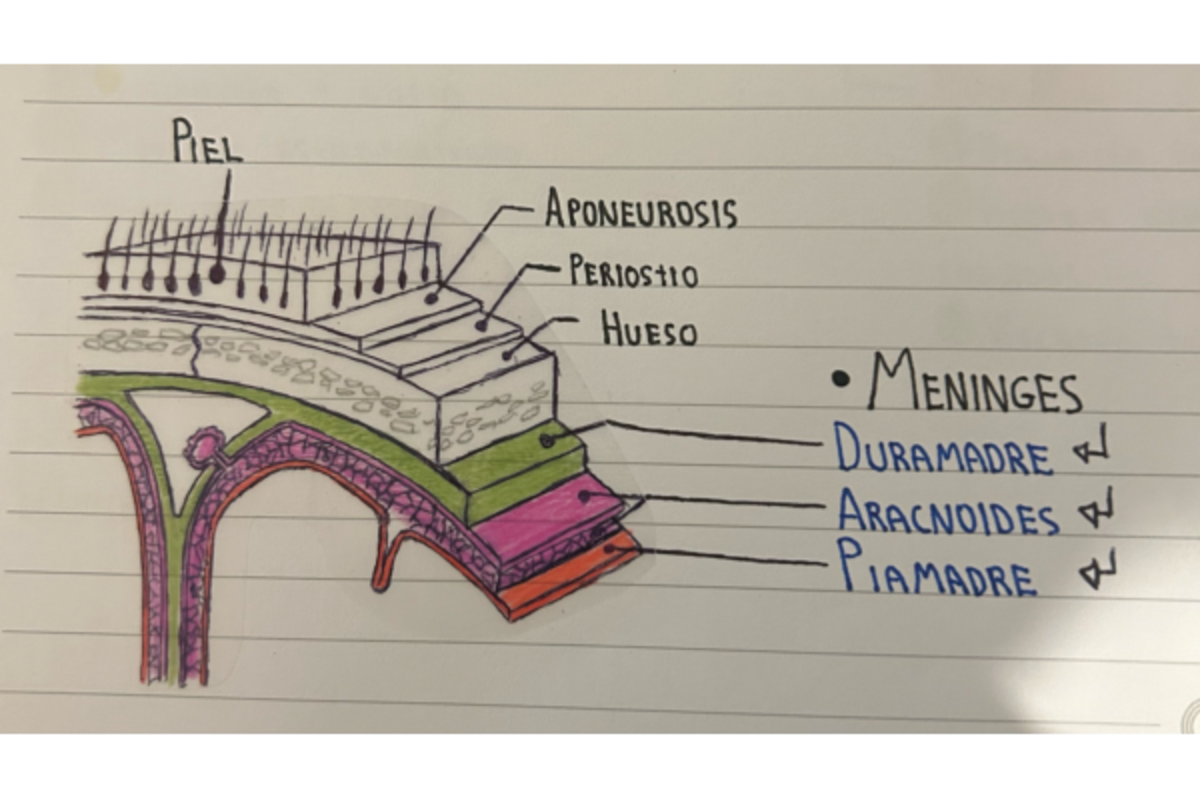 PIEL
APONEUROSIS
PERIOSTIO
HUESO
• MENINGES
DURAMADRE
ARACNOIDES
PIAMADRE